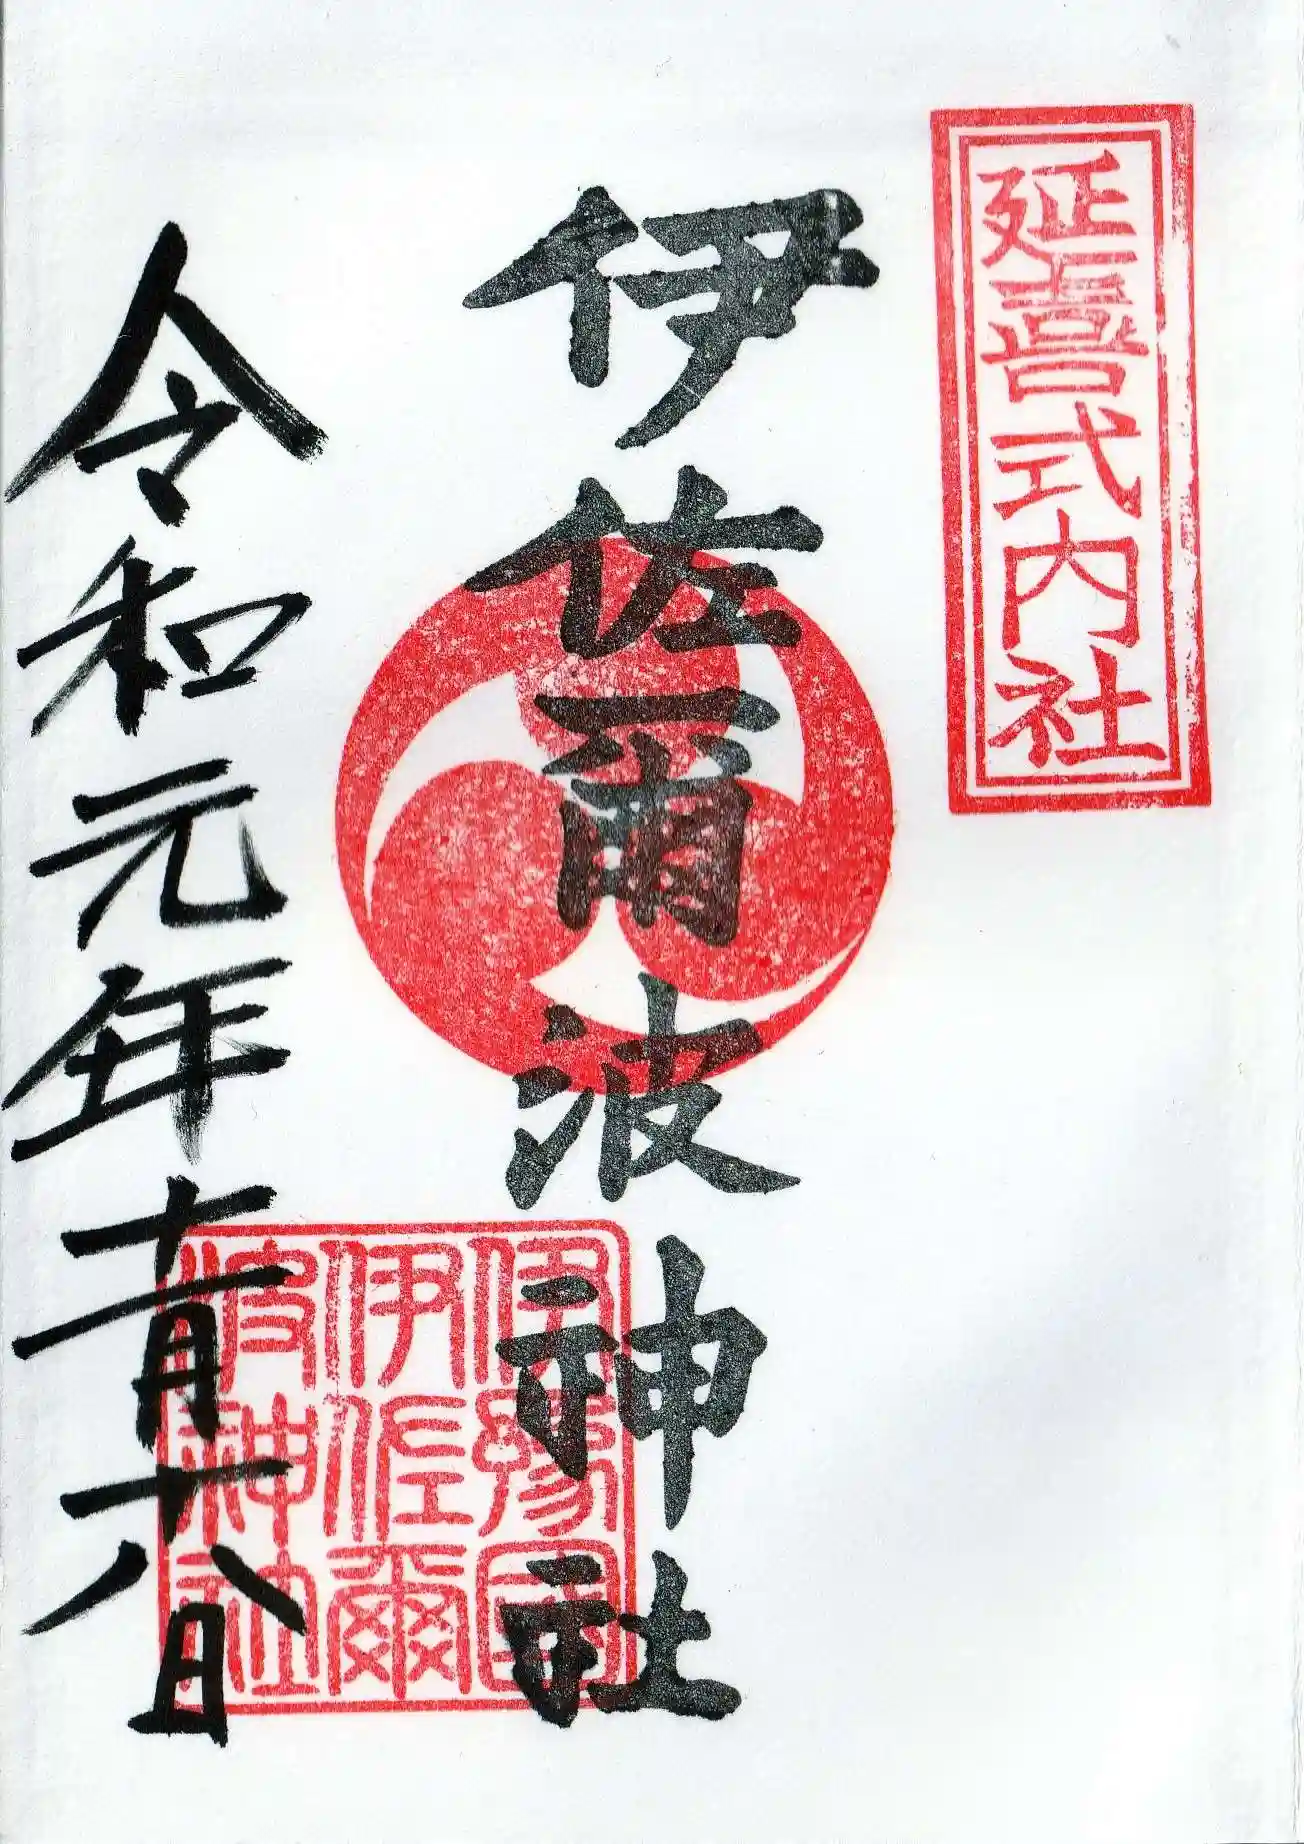 延喜式内社
伊佐爾波神社
令和元年十一月十八日
伊豫國
伊佐爾
波神社